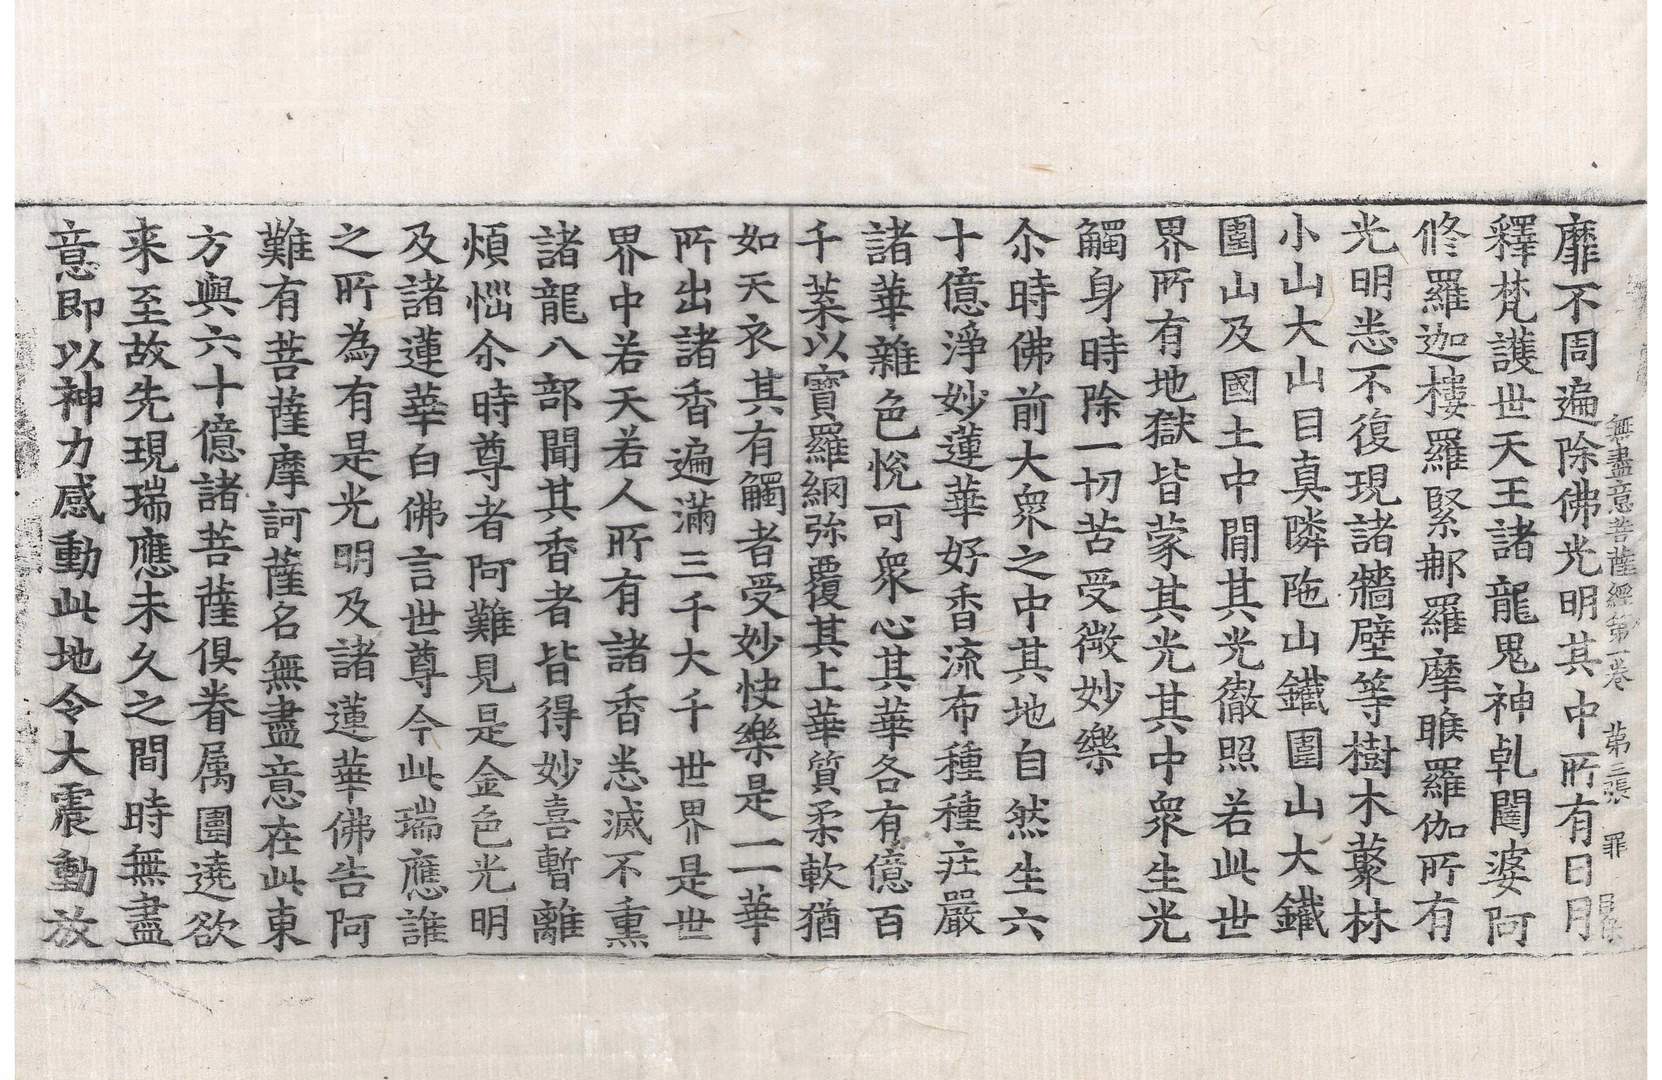 無盡意菩薩經第一卷　第三張　罪
靡不周遍除佛光明其中所有日月
釋梵護世天王諸龍鬼神乹闥婆阿
修羅迦樓羅緊那羅摩睺羅伽所有
光明悉不復現諸牆壁等樹木藂林
小山大山目真隣陁山鐵圍山大鐵
圍山及國土中間其光徹照若此世
界所有地獄皆蒙其光其中衆生光
觸身時除一切苦受微妙樂
尒時佛前大衆之中其地自然生六
十億淨妙蓮華好香流布種種庄嚴
諸華雜色悅可衆心其華各有億百
千葉以寶羅網弥覆其上華質柔軟猶
如天衣其有觸者受妙快樂是一一華
所出諸香遍滿三千大千世界是世
界中若天若人所有諸香悉滅不熏
諸龍八部聞其香者皆得妙喜暫離
煩惱尒時尊者阿難見是金色光明
及諸蓮華白佛言世尊今此瑞應誰
之所為有是光明及諸蓮華佛告阿
難有菩薩摩訶薩名無盡意在此東
方與六十億諸菩薩俱眷属圍遶欲
来至故先現瑞應未久之間時無盡
意即以神力感動此地令大震動放